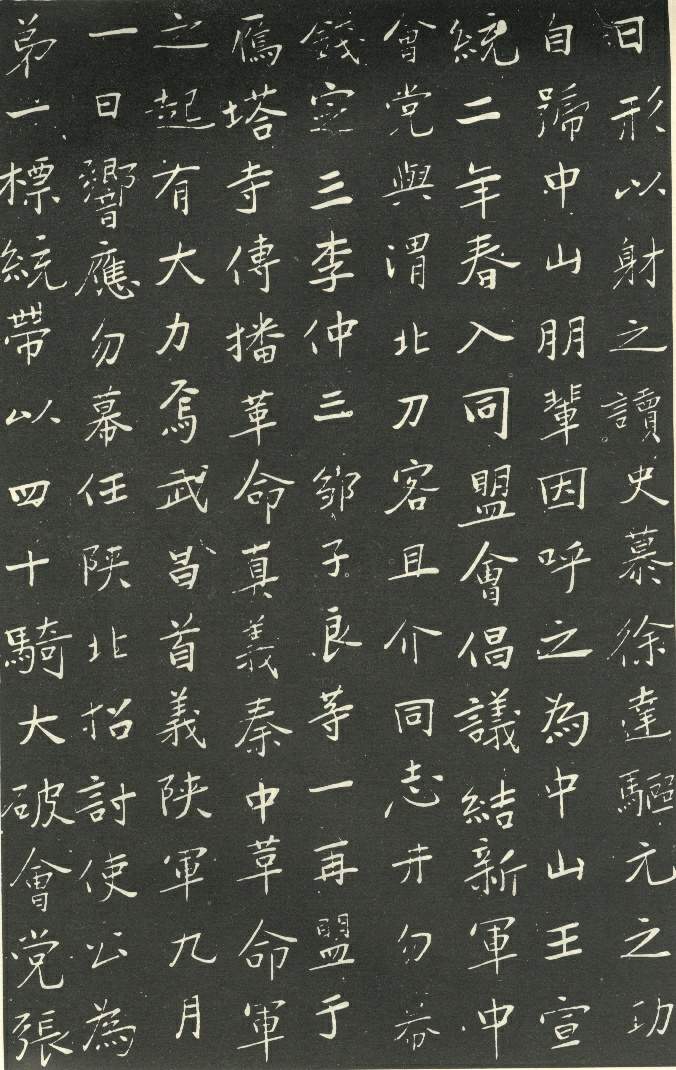 日形以射之讀史慕徐達驅元之功
自號中山朋輩因呼之為中山王宣
統二年春入同盟會倡議結新軍冲
會党與渭北刀客且介同志井勿幕
錢定三李仲三鄒子良等一再盟于
鴈塔寺傳播革命真義秦中革命軍
之起有大力焉武昌首義陝軍九月
一日響應勿幕任陝北招討使公為
弟一標統帶以四十騎大破會党張